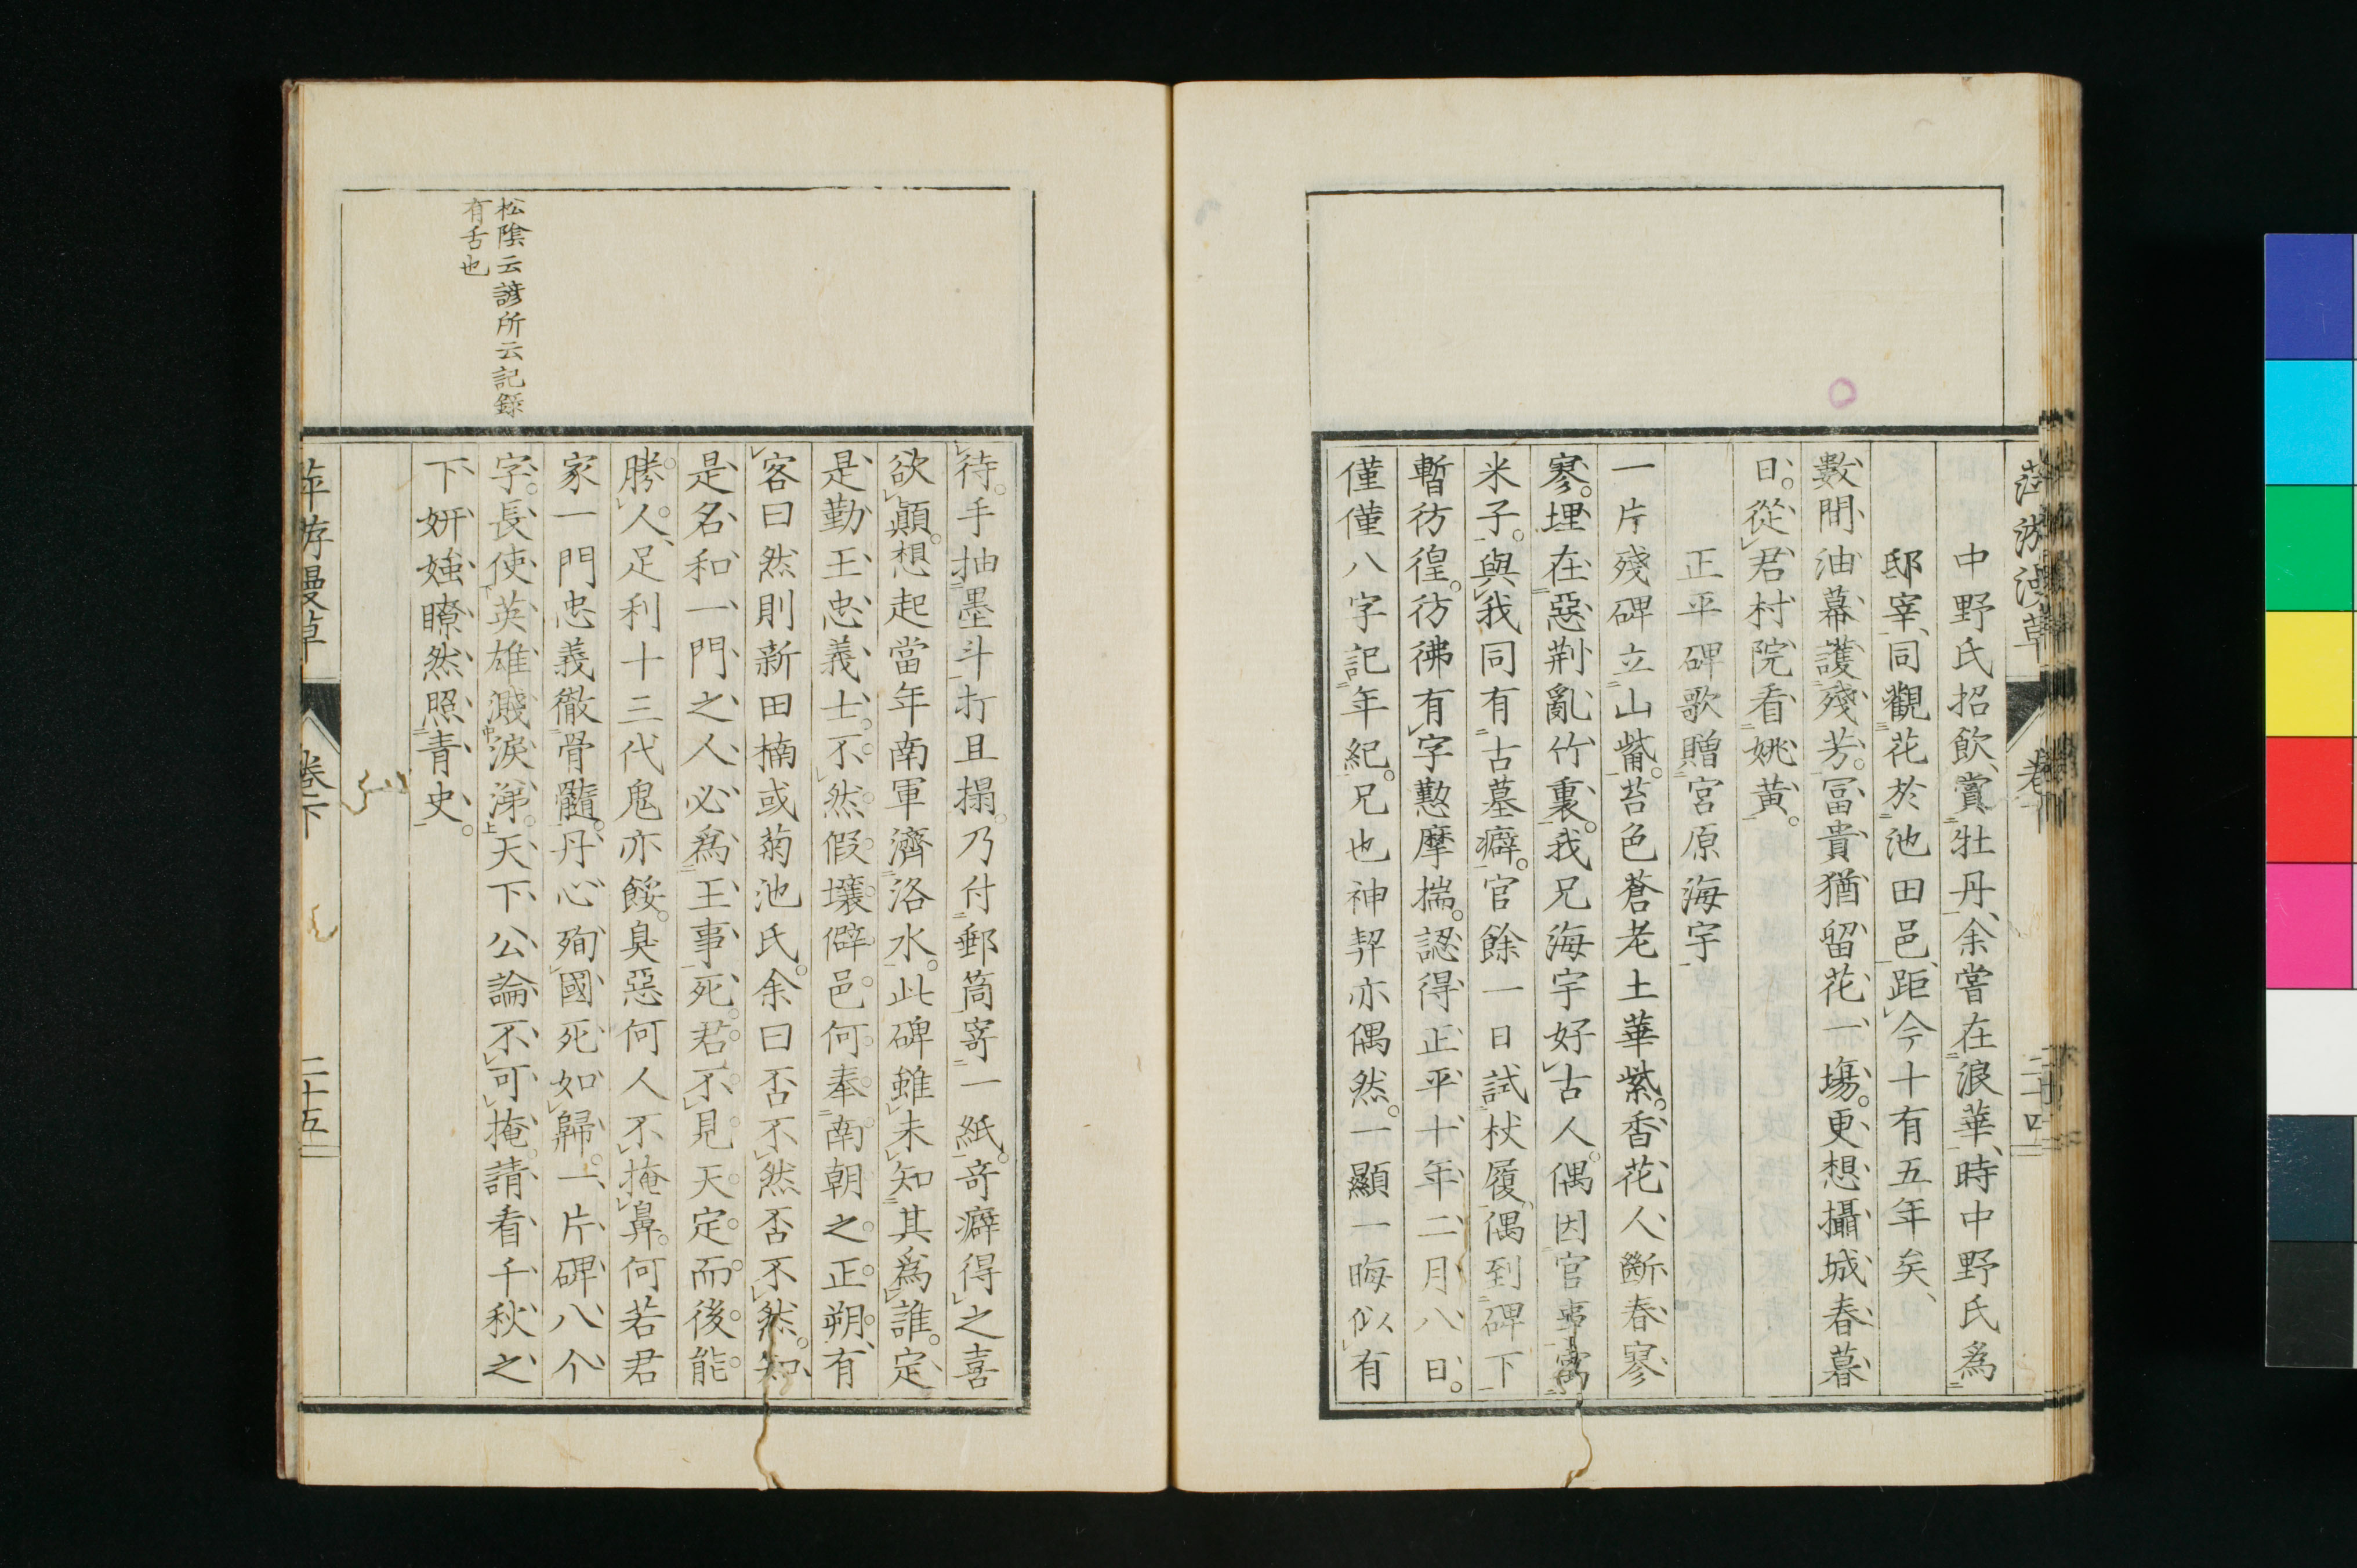 中野氏招飲賞牡丹、余嘗在浪華、時中野氏為
邸宰、同觀花於池田邑、距今十有五年矣、
數間油幕護殘芳。冨貴猶留花一塲。更想攝城春暮
日。從君村院看姚黄。
正平碑歌贈宮原海宇
一片殘碑立山觜。苔色蒼老土華紫。香花人斷春寥
寥。埋在惡荆亂竹裏。我兄海宇好古人。偶因官事寓
米子。與我同有古墓癖。官餘一日試杖履、偶到碑下
暫彷徨。彷彿有字懃摩揣。認得正平十年二月八日。
僅僅八字記年紀。兄也神契亦偶然。一顯一晦似有
待。手抽墨斗打且搨。乃付郵筒寄一紙。竒癖得之喜
欲顛。想起當年南軍濟洛水。此碑雖未知其為誰。定
是勤王忠義士。不然假壤僻邑何奉南朝之正朔。有
客曰然則新田楠或菊池氏。余曰否不然否不然。知
是名和一門之人必為王事死。君不見天定而後能
勝人、足利十三代鬼亦餒。臭惡何人不掩鼻。何若君
家一門忠義徹骨髓。丹心殉國死如歸。一片碑八个
字。長使英雄濺淚涕。天下公論不可掩。請看千秋之
下妍媸瞭然照青史。
松陰云諺所云記録
有舌也
萍游漫草
卷下
二十五